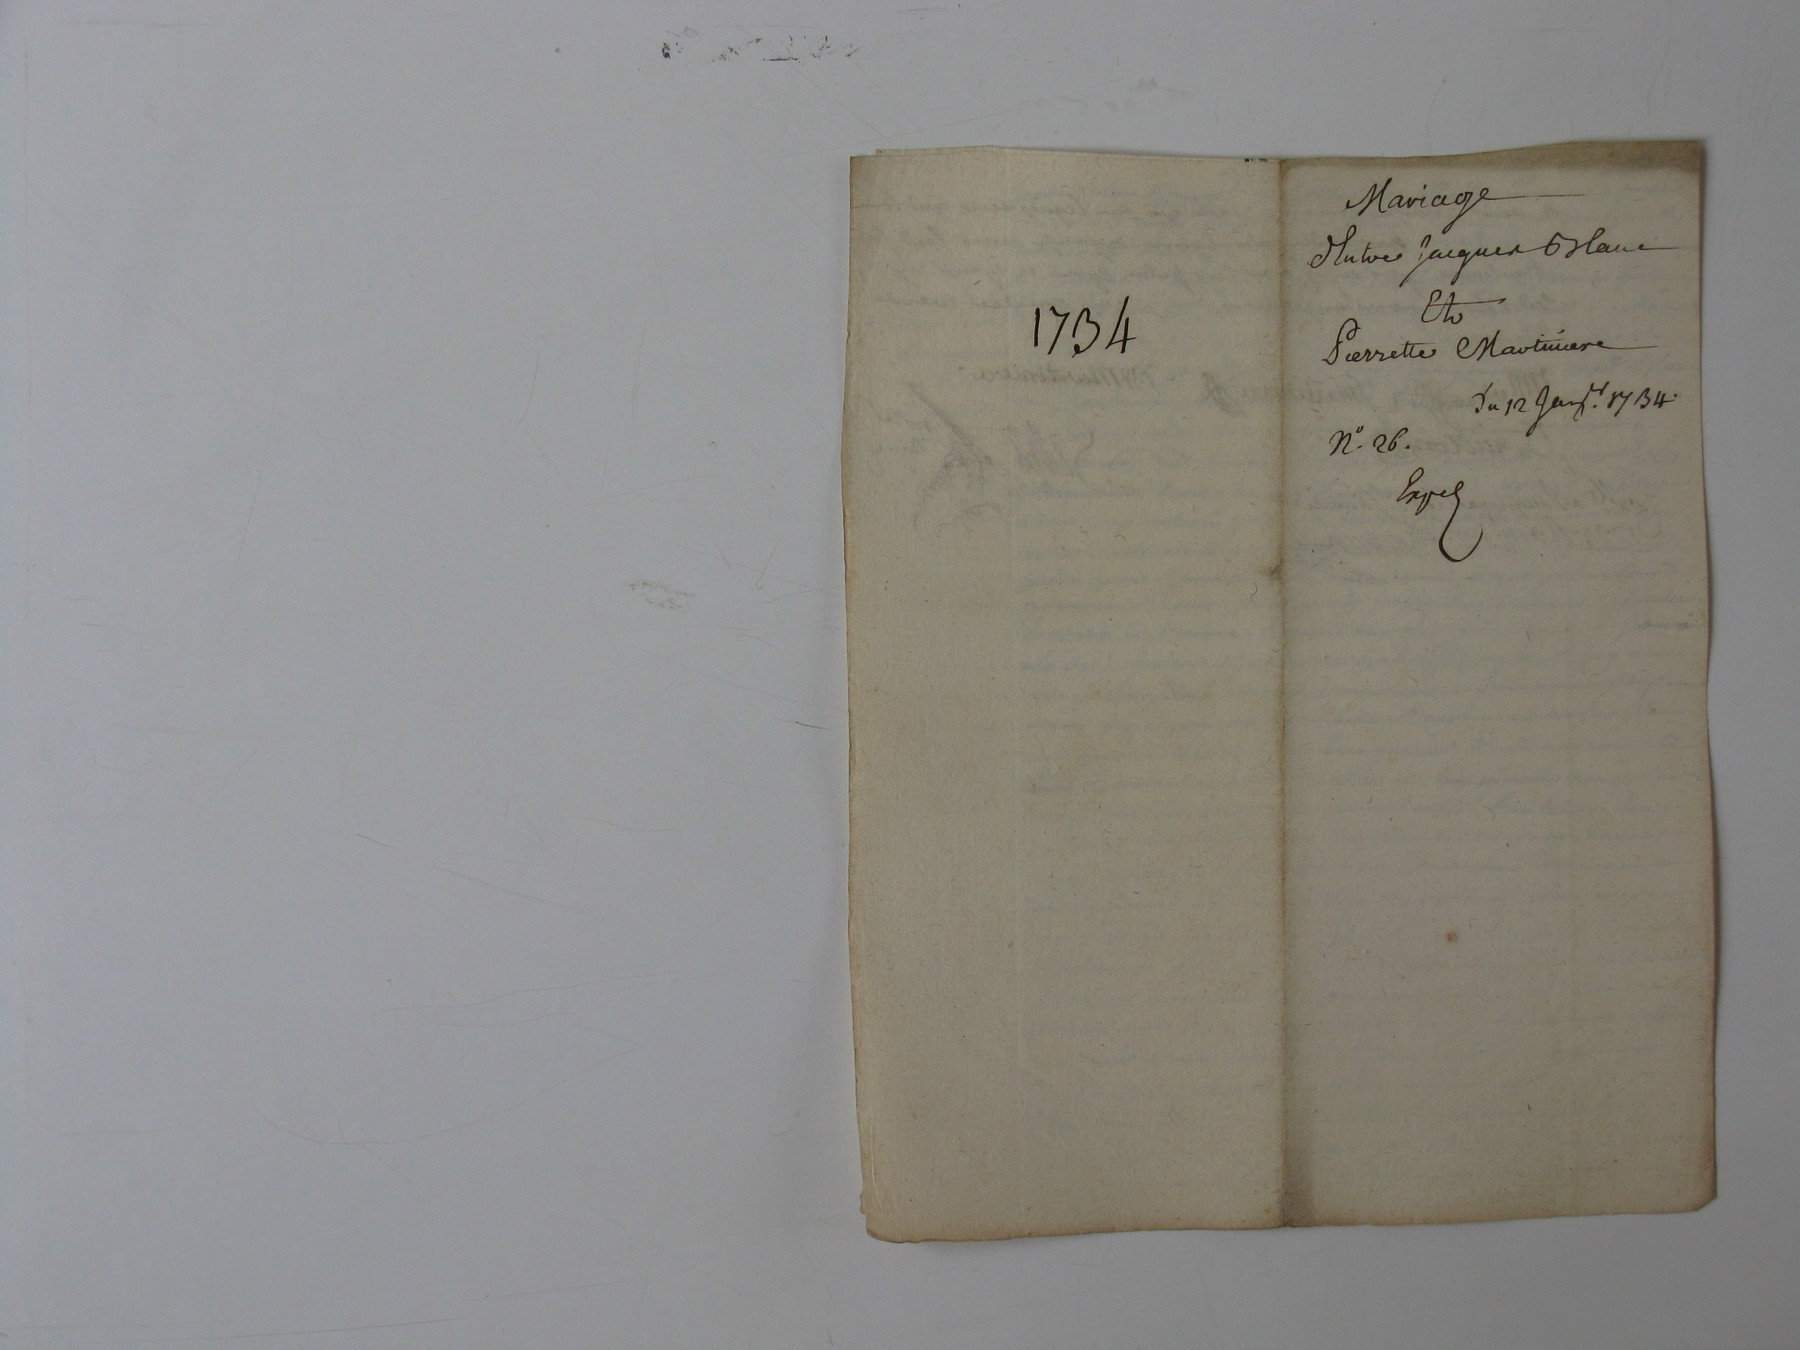 1734
Mariage
d'Entre Jacques Blanc
Et
Pierrette Martiniere
Du 12 Janv.r 1734.
N.o 26.
Exped